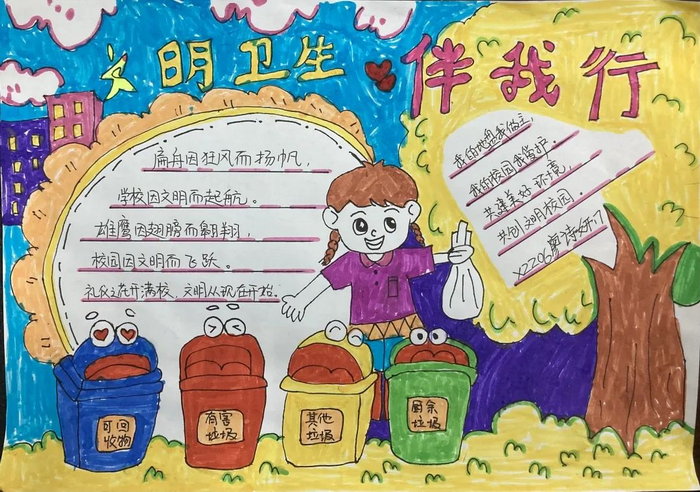 文明卫生
伴我行
扁舟因狂风而扬帆，
学校因文明而起航。
雄鹰因翅膀而翱翔，
校园因文明而飞跃。
礼仪花开满校，文明从现在开始。
我的地盘我做主，
我的校园我管护。
共建美好环境，
共创文明校园。
x2206廖诗妍
可回
收物
有害
垃圾
其他
垃圾
厨余
垃圾